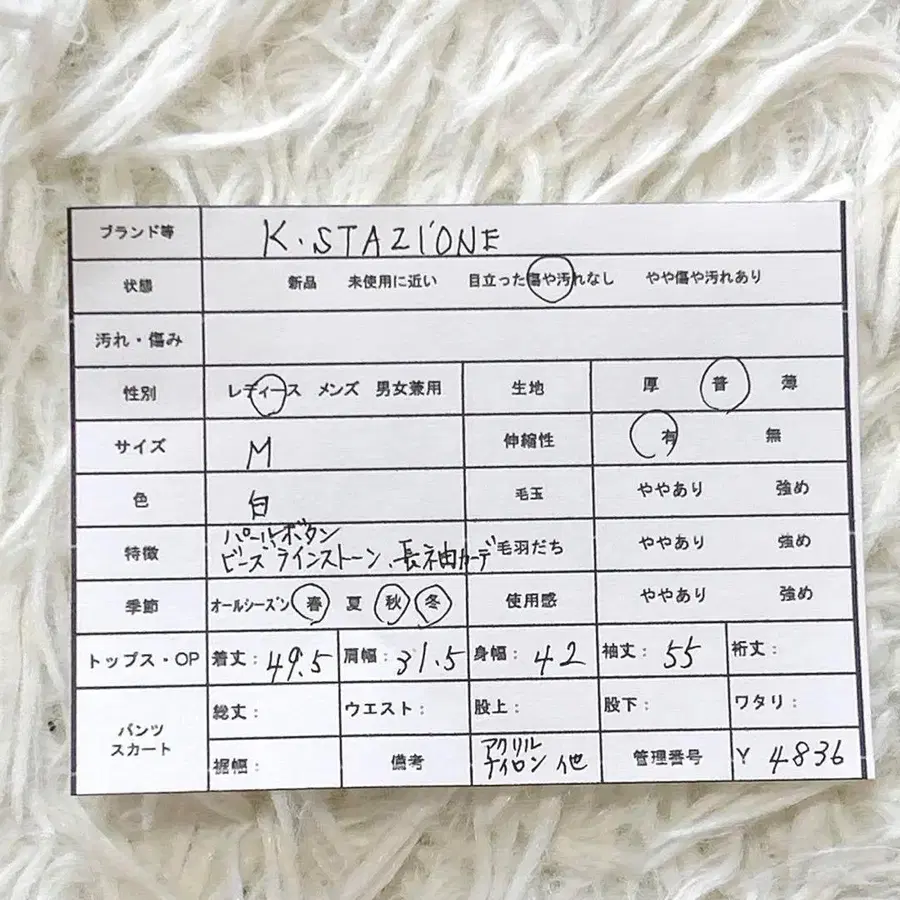 ブランド等 K.STAZIONE
状態 新品 未使用に近い 目立った傷や汚れなし やや傷や汚れあり
汚れ・傷み
性別 レディース メンズ 男女兼用 生地 厚 普 薄
サイズ M 伸縮性 有 無
色 白 毛玉 ややあり 強め
特徴 パールボタン
ビーズラインストーン、長袖カーデ 毛羽だち ややあり 強め
季節 オールシーズン 春 夏 秋 冬 使用感 ややあり 強め
トップス・OP 着丈: 49.5 肩幅: 31.5 身幅: 42 袖丈: 55 裄丈:
パンツ
スカート
総丈: ウエスト: 股上: 股下: ワタリ:
裾幅: 備考 アクリル
ナイロン 他 管理番号 Y 4836